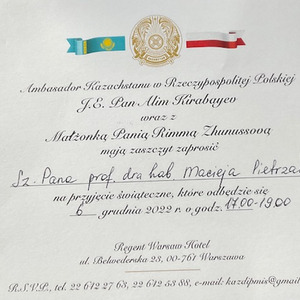 Ambasador Kazachstanu w Rzeczypospolitej Polskiej
J.E. Pan Alim Kirabayev
wraz z
Małżonką Panią Rimmą Zhunussovą
mają zaszczyt zaprosić
Sz. Pana prof. dra hab Macieja
na przyjęcie świąteczne, które odbędzie się
6 grudnia 2022 r. o godz. 17.00-19.00
Regent Warsaw Hotel
ul. Belwederska 23, 00-761 Warszawa
R.S.V.P., tel. 22 612 27 63, 22 612 53 88, e-mail: kazdipmis@